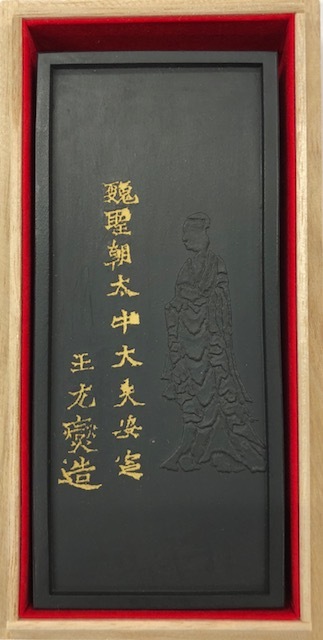 魏聖朝太中大夫安定
王元燮造